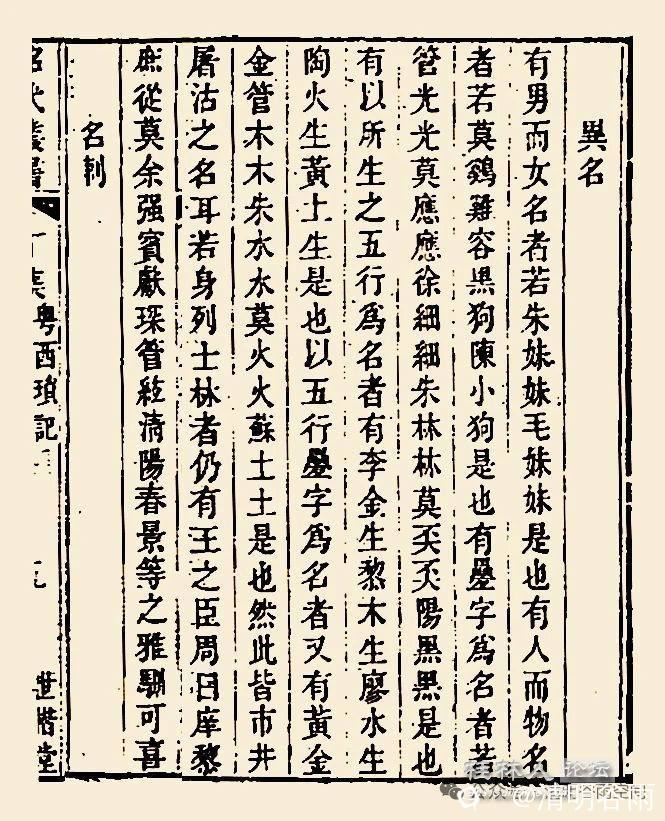 異名
有男而女名者若朱妹妹毛妹妹是也有人而物名
者若莫雞容黑狗陳小狗是也有疊字爲名者若
管光光莫應應徐細細朱林林莫奀奀陽黑黑是也
有以所生之五行爲名者有李金生黎木生廖水生
陶火生黃土生是也以五行疊字爲名者又有黃金
金管木木朱水水莫火火蘇土土是也然此皆市井
屠沽之名耳若身列士林者仍有王之臣周日庠黎
庶從莫余强賓獻琛管淸陽春景等之雅馴可喜
名刺
昭代叢書 丁集粵西瑣記 世楷堂
桂林人论坛
@清明谷雨